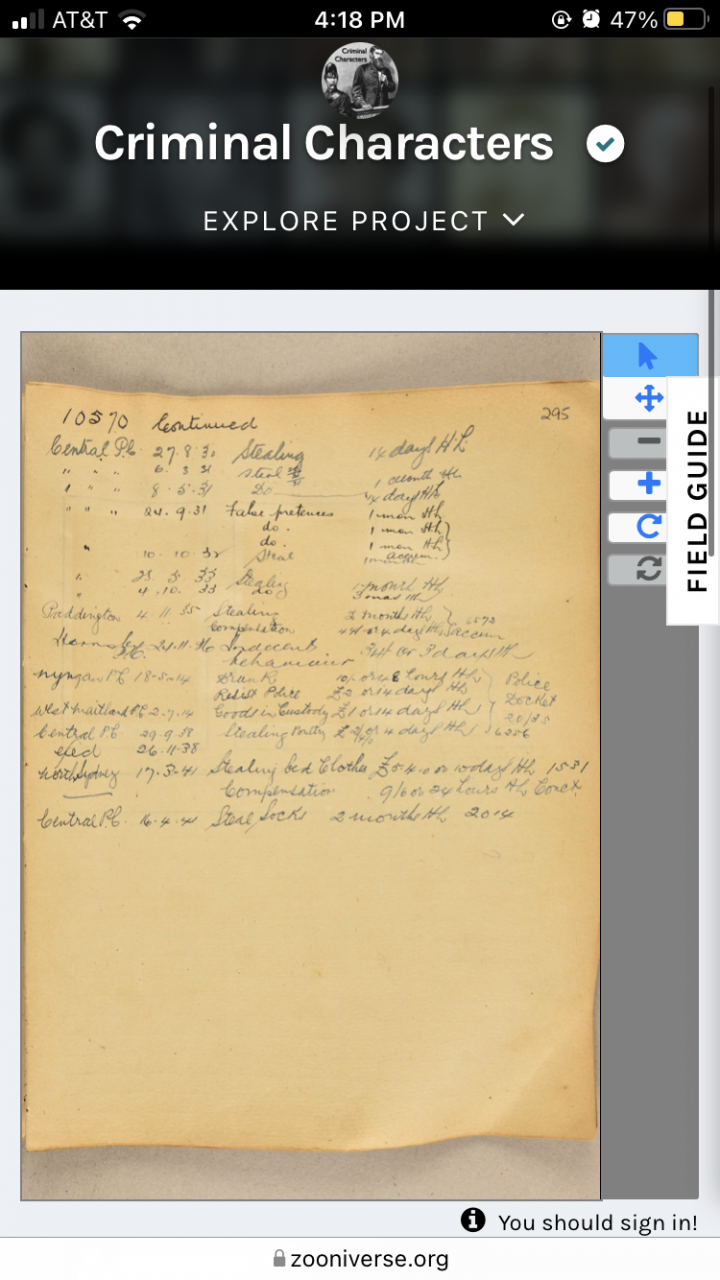 AT&T 4:18 PM 47%
Criminal Characters
Criminal Characters
EXPLORE PROJECT
FIELD GUIDE
10570 Continued 295
Central P.C. 27.8.30 Stealing 14 days H.L.
" " " 6. 3 31 Steal 1 month Hh
" " " 8.5.31 Do 14 days Hh
" " " 24.9.31 False pretences 1 mon Hh
do. 1 mon Hh
do. 1 mon Hh
" 10.10.32 Steal accum.
" 23 5 33 Stealing 1 month Hh
" 4.10.33 do 3 mos Hh
Paddington 4.11.35 Stealing 2 months Hh 6573
Compensation or 4 days Hh accum
P.C. 21.11.36 Indecent or 3 days Hh
behaviour
Nyngan P.C. 18-5-14 Drunk 10/- or 48 hours Hh Police
Resist Police £2 or 14 days Hh Docket
West Maitland P.C. 2.7.14 Goods in Custody £1 or 14 days Hh 20/35
Central P.C. 29.9.38 Stealing or 4 days Hh 6206
26.11.38
North Sydney 17.3.41 Stealing bed Clothes or 10 days Hh 1531
Compensation 9/6 or 24 hours Hh
Central P.C. 16.4.41 Steal Socks 2 months Hh 2014
You should sign in!
zooniverse.org